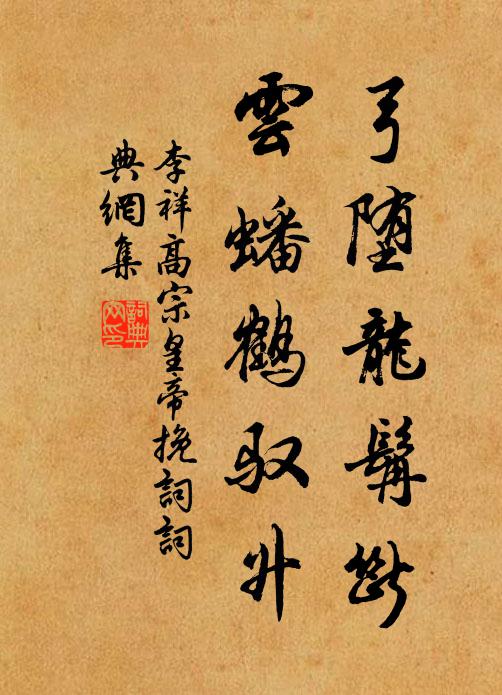 弓堕龍髯斷
雲蟠鶴馭升
李祥高宗皇帝挽詞詞
典網集
詞典
网印